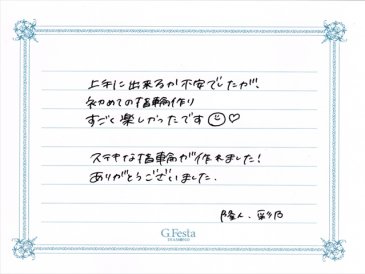 上手に出来るか不安でしたが、
初めての指輪作り
すごく楽しかったです
ステキな指輪が作れました！
ありがとうございました.
隆人. 彩乃
G.Festa
DIAMOND